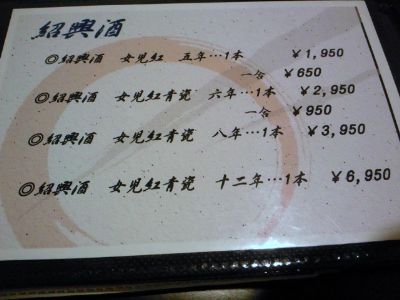 紹興酒
◎紹興酒 女児紅 五年…1本 ￥1,950
一合 ￥650
◎紹興酒 女児紅青瓷 六年…1本 ￥2,950
一合 ￥950
◎紹興酒 女児紅青瓷 八年…1本 ￥3,950
◎紹興酒 女児紅青瓷 十二年…1本 ￥6,950